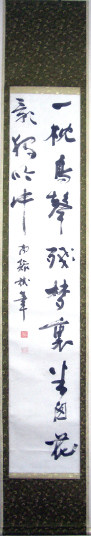 一枕鳥聲殘夢裏半窗花
影獨吟中